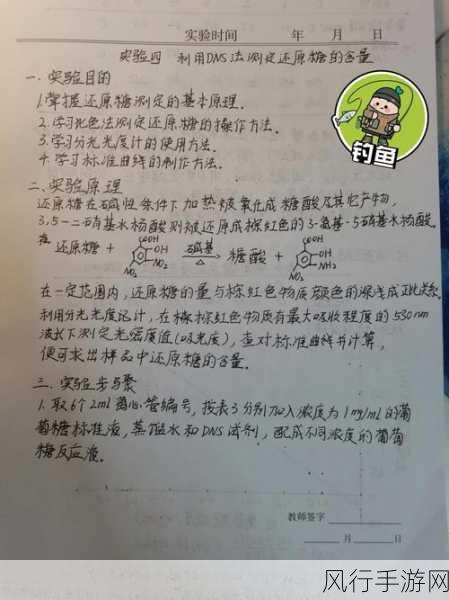 实验时间 年 月 日
实验四 利用DNS法测定还原糖的含量
一、实验目的
1.掌握还原糖测定的基本原理.
2.学习比色法测定还原糖的操作方法.
3.学习分光光度计的使用方法.
4.学习标准曲线的制作方法.
钓鱼
二、实验原理
还原糖在碱性条件下加热被氧化成糖酸及其它产物,
3,5-二硝基水杨酸则被还原成棕红色的3-氨基-5-硝基水杨酸.
还原糖 + COOH OH NO₂ NO₂ 碱基 △ 糖酸 + COOH OH NH₂ NO₂
在一定范围内,还原糖的量与棕红色物质颜色的深浅成正比关系.
利用分光光度计,在棕红色物质有最大吸收程度的530nm
波长下测定光强度值(吸光度),查对标准曲线并计算,
便可求出样品中还原糖的含量.
三、实验步骤
1.取6个2ml离心管编号,按表3分别加入浓度为1mg/mL的葡
萄糖标准液,蒸馏水和DNS试剂,配成不同浓度的葡萄
糖反应液.
教师签字
月 日
风行手游网